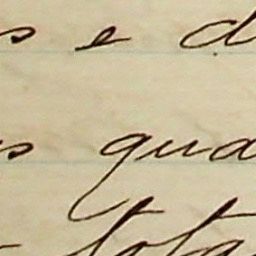 s e d
s qua
tota